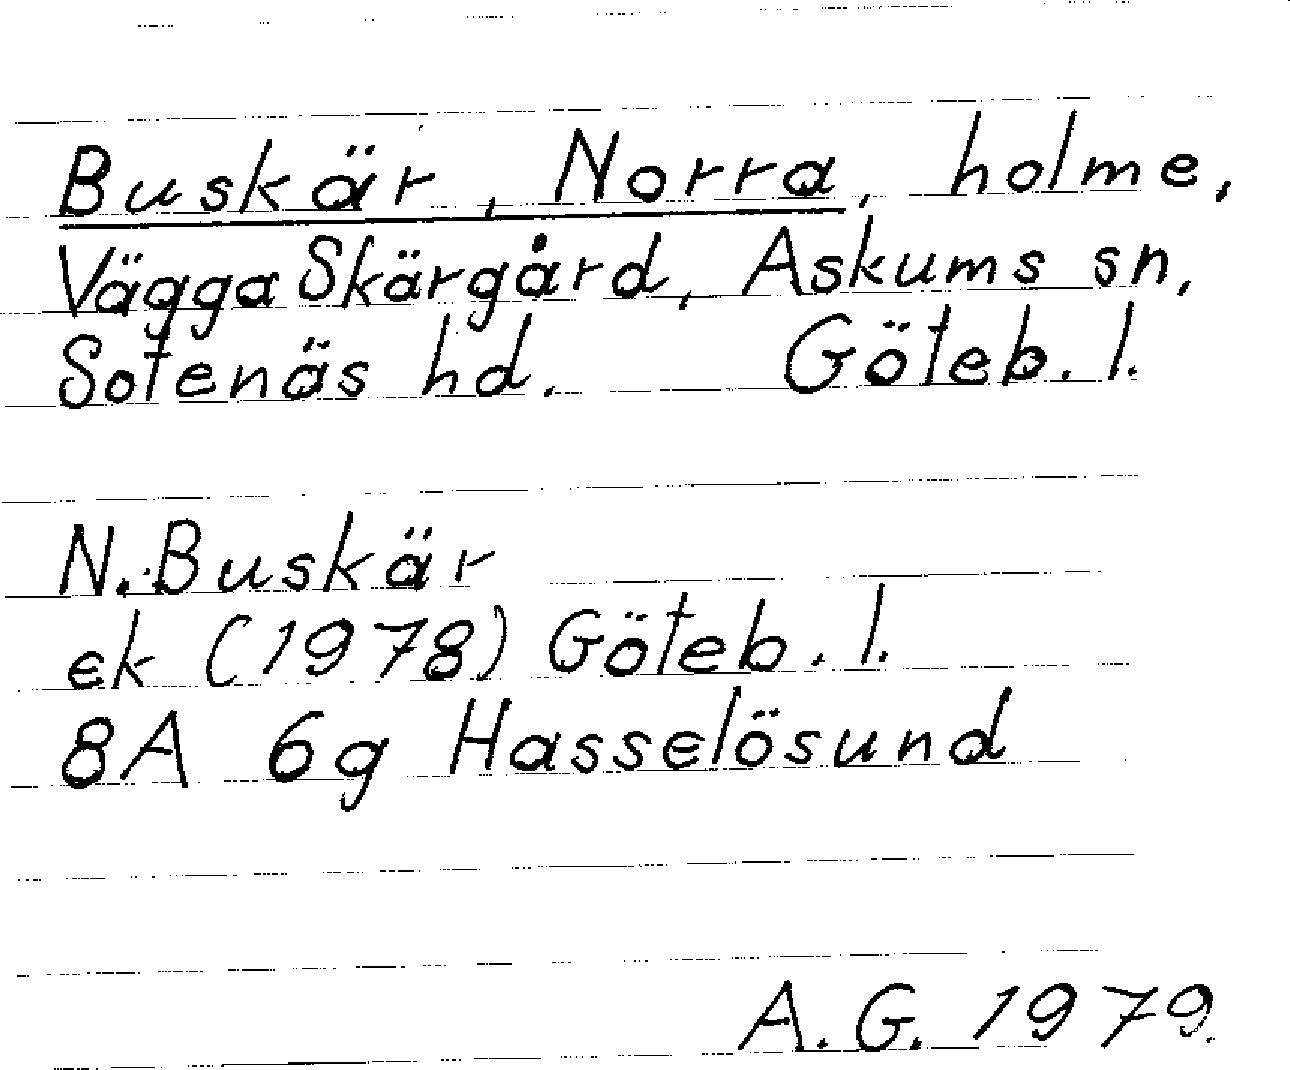 Buskär, Norra, holme,
Vägga Skärgård, Askums sn,
Sotenäs hd. Göteb. l.
N. Buskär
ek (1978) Göteb. l.
8A 6g Hasselösund
A. G. 1979.